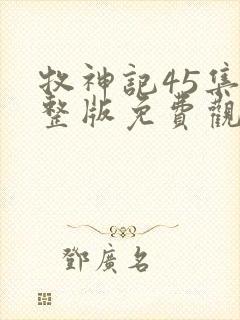 牧神記45集
整版免費觀
鄧廣名